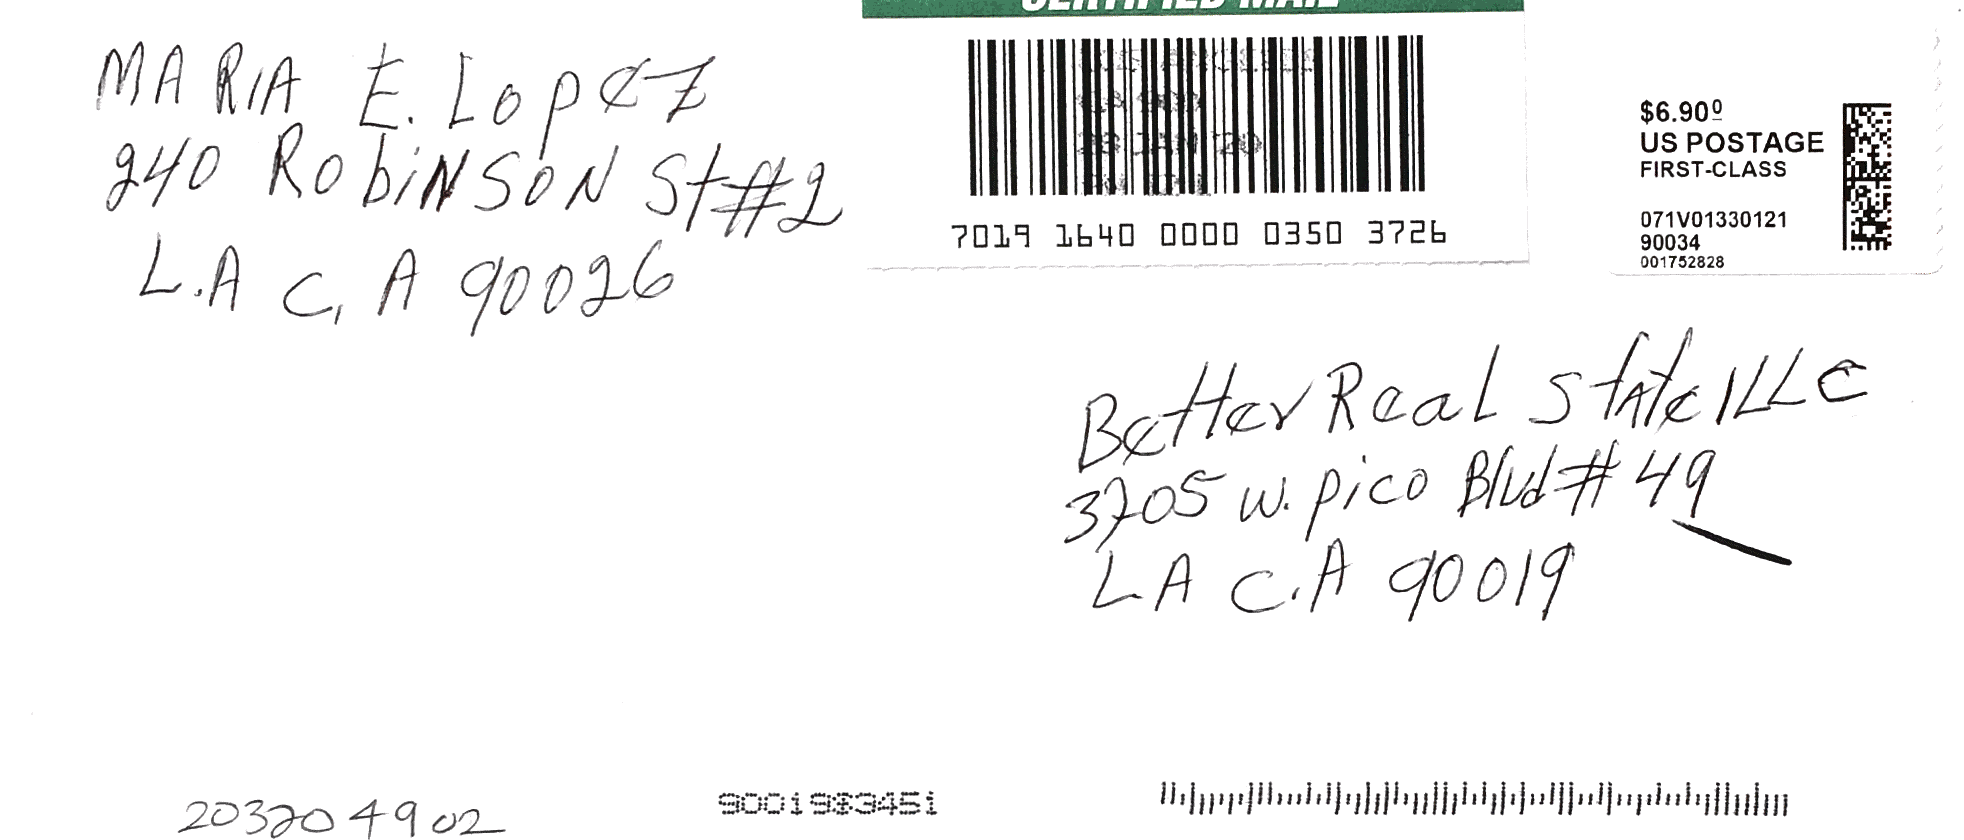 CERTIFIED MAIL
MARIA E. Lopez
240 Robinson St #2
L.A C, A 90026
7019 1640 0000 0350 3726
$6.90⁰
US POSTAGE
FIRST-CLASS
071V01330121
90034
001752828
Better Real State LLC
3705 w. pico Blvd # 49
LA C.A 90019
2037204902
90019
3451